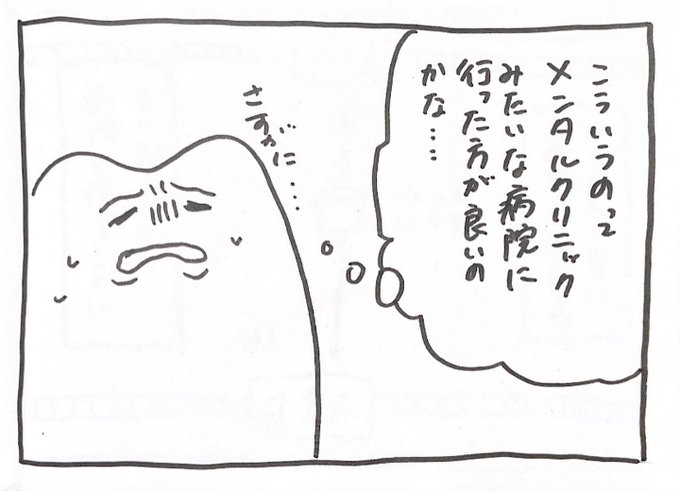 こういうのって
メンタルクリニック
みたいな病院に
行った方が良いの
かな……
さすがに…